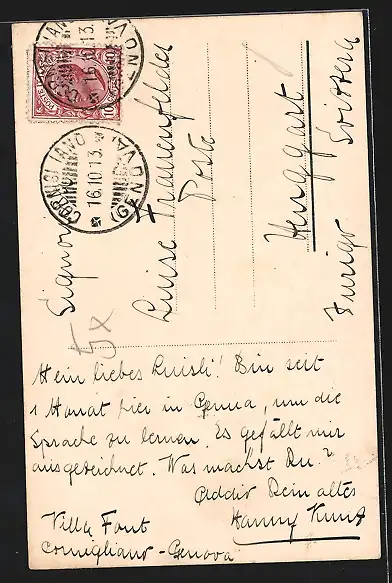 CORNIGLIANO (GENOVA)
16.10.13.
Signora
Luise Frauenfelder
Poste
Henggart
Zurigo Svizzera
5x
Mein liebes Luisli! Bin seit
1 Monat hier in Genua, um die
Sprache zu lernen. Es gefällt mir
ausgezeichnet. Was machst Du?
Addio Dein altes
Hanny Kunz
Villa Font
Cornigliano - Genova